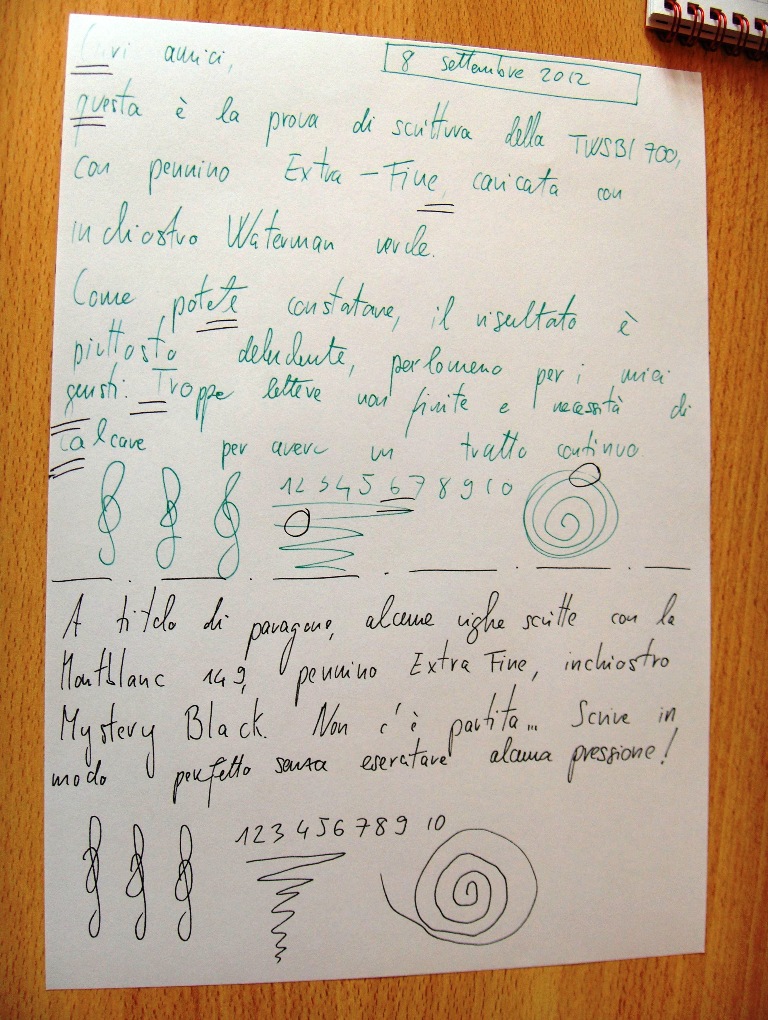 Cari amici,
8 settembre 2012
questa è la prova di scrittura della TWSBI 700,
con pennino Extra-Fine, caricata con
inchiostro Waterman verde.
Come potete constatare, il risultato è
piuttosto deludente, perlomeno per i miei
gusti. Troppe lettere non finite e necessità di
calcare per avere un tratto continuo.
1 2 3 4 5 6 7 8 9 10
A titolo di paragone, alcune righe scritte con la
Montblanc 149, pennino Extra Fine, inchiostro
Mystery Black. Non c'è partita... Scrive in
modo perfetto senza esercitare alcuna pressione!
1 2 3 4 5 6 7 8 9 10